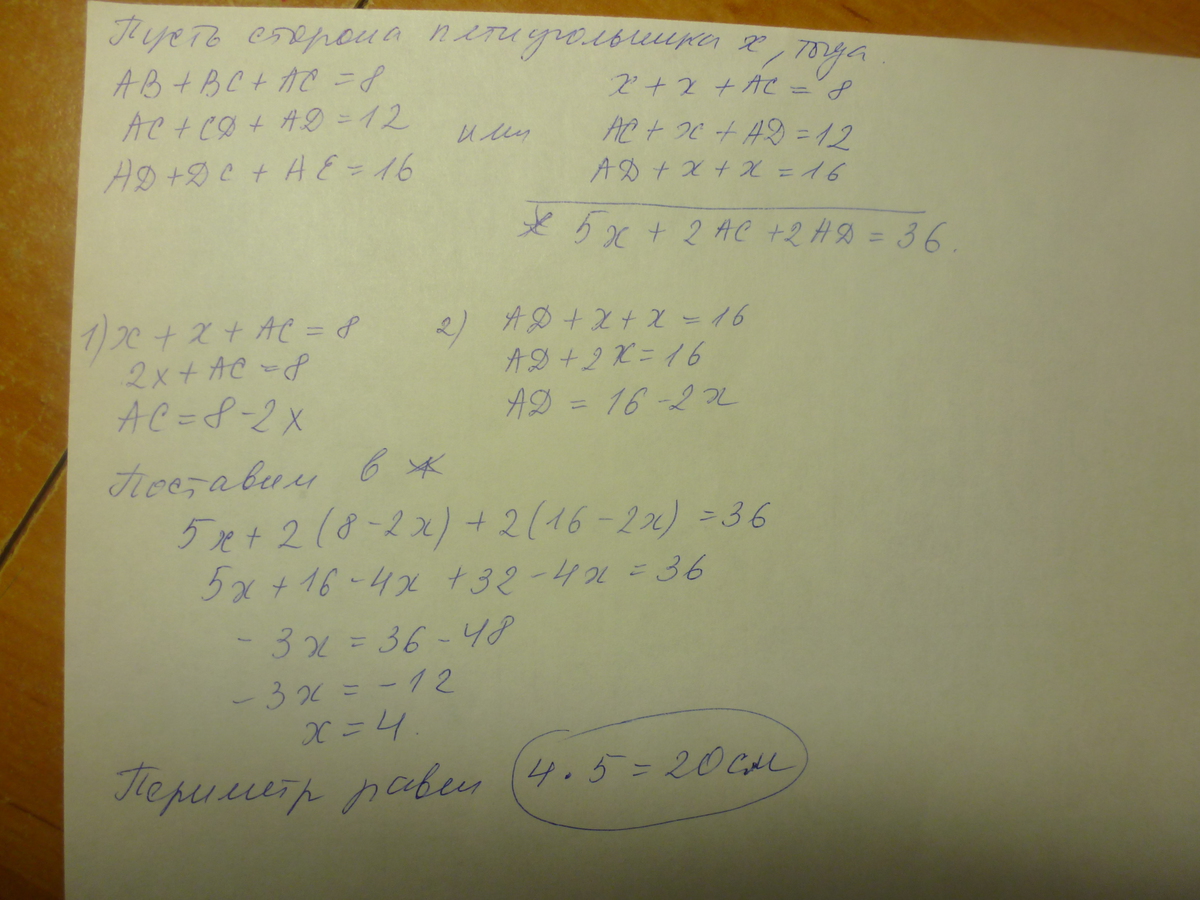 Пусть сторона пятиугольника x, тогда
AB + BC + AC = 8
AC + CD + AD = 12
AD + DC + AE = 16
или
x + x + AC = 8
AC + x + AD = 12
AD + x + x = 16
* 5x + 2AC + 2AD = 36.
1) x + x + AC = 8
2x + AC = 8
AC = 8 - 2x
2) AD + x + x = 16
AD + 2x = 16
AD = 16 - 2x
Поставим в *
5x + 2(8 - 2x) + 2(16 - 2x) = 36
5x + 16 - 4x + 32 - 4x = 36
- 3x = 36 - 48
- 3x = - 12
x = 4.
Периметр равен 4 · 5 = 20 см